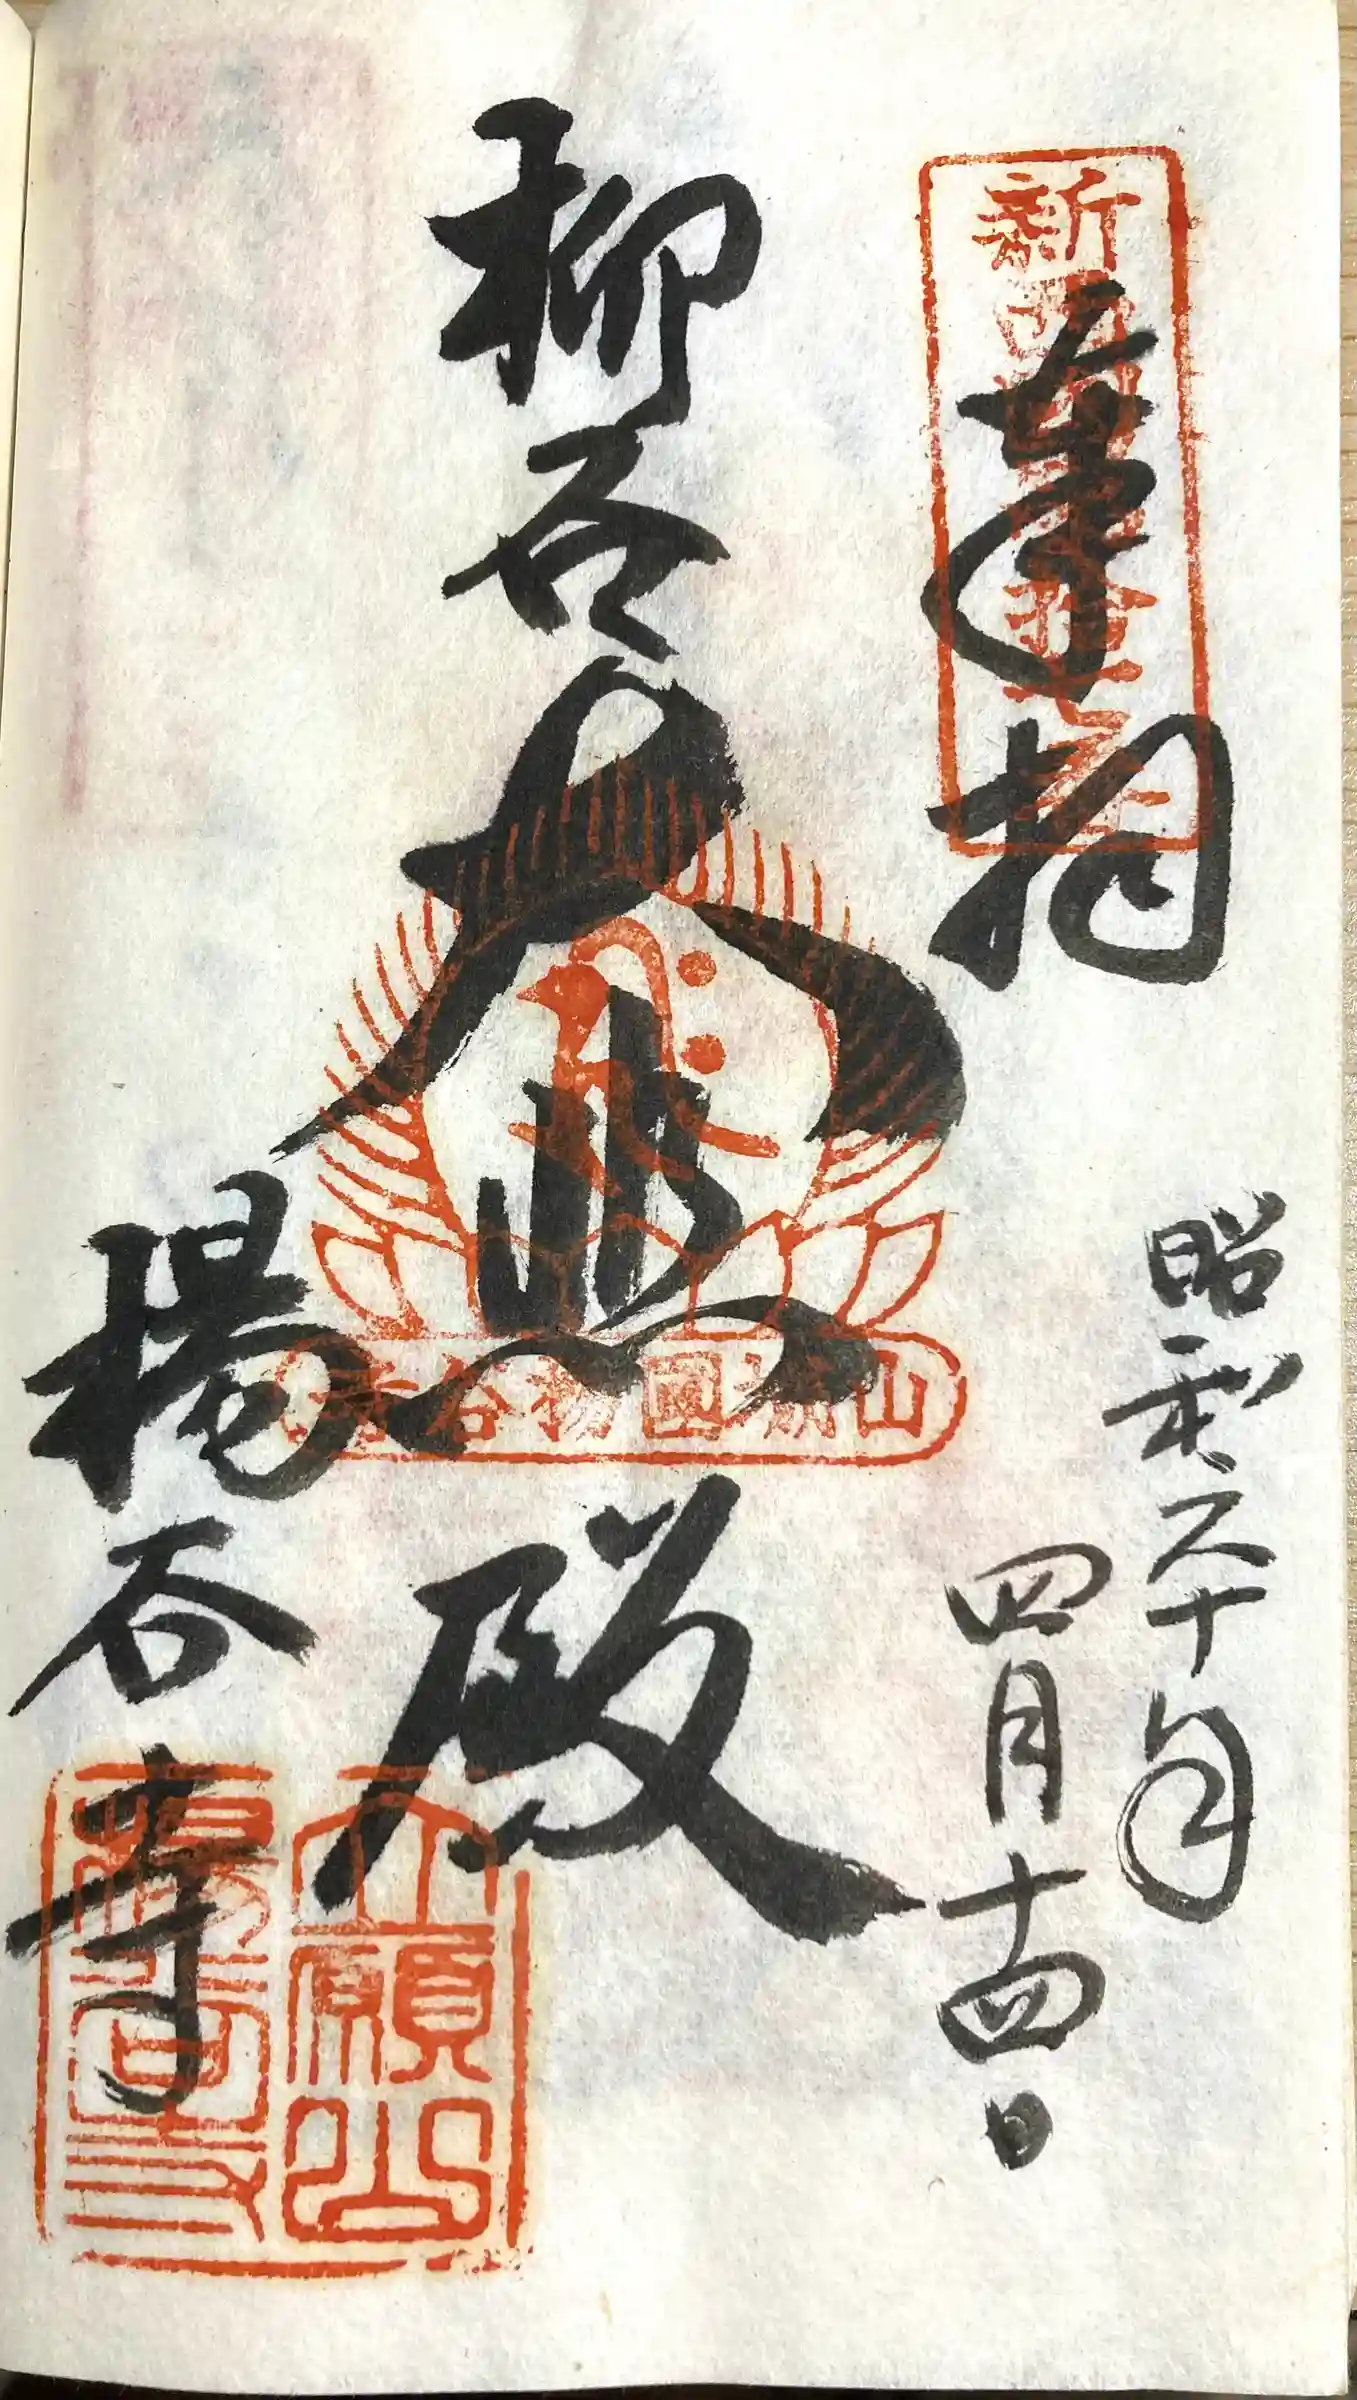 奉拝
昭和六十年
四月十四日
柳谷大悲殿
楊谷寺
新西国第十七番
山城國柳谷寺
立願山
楊谷寺